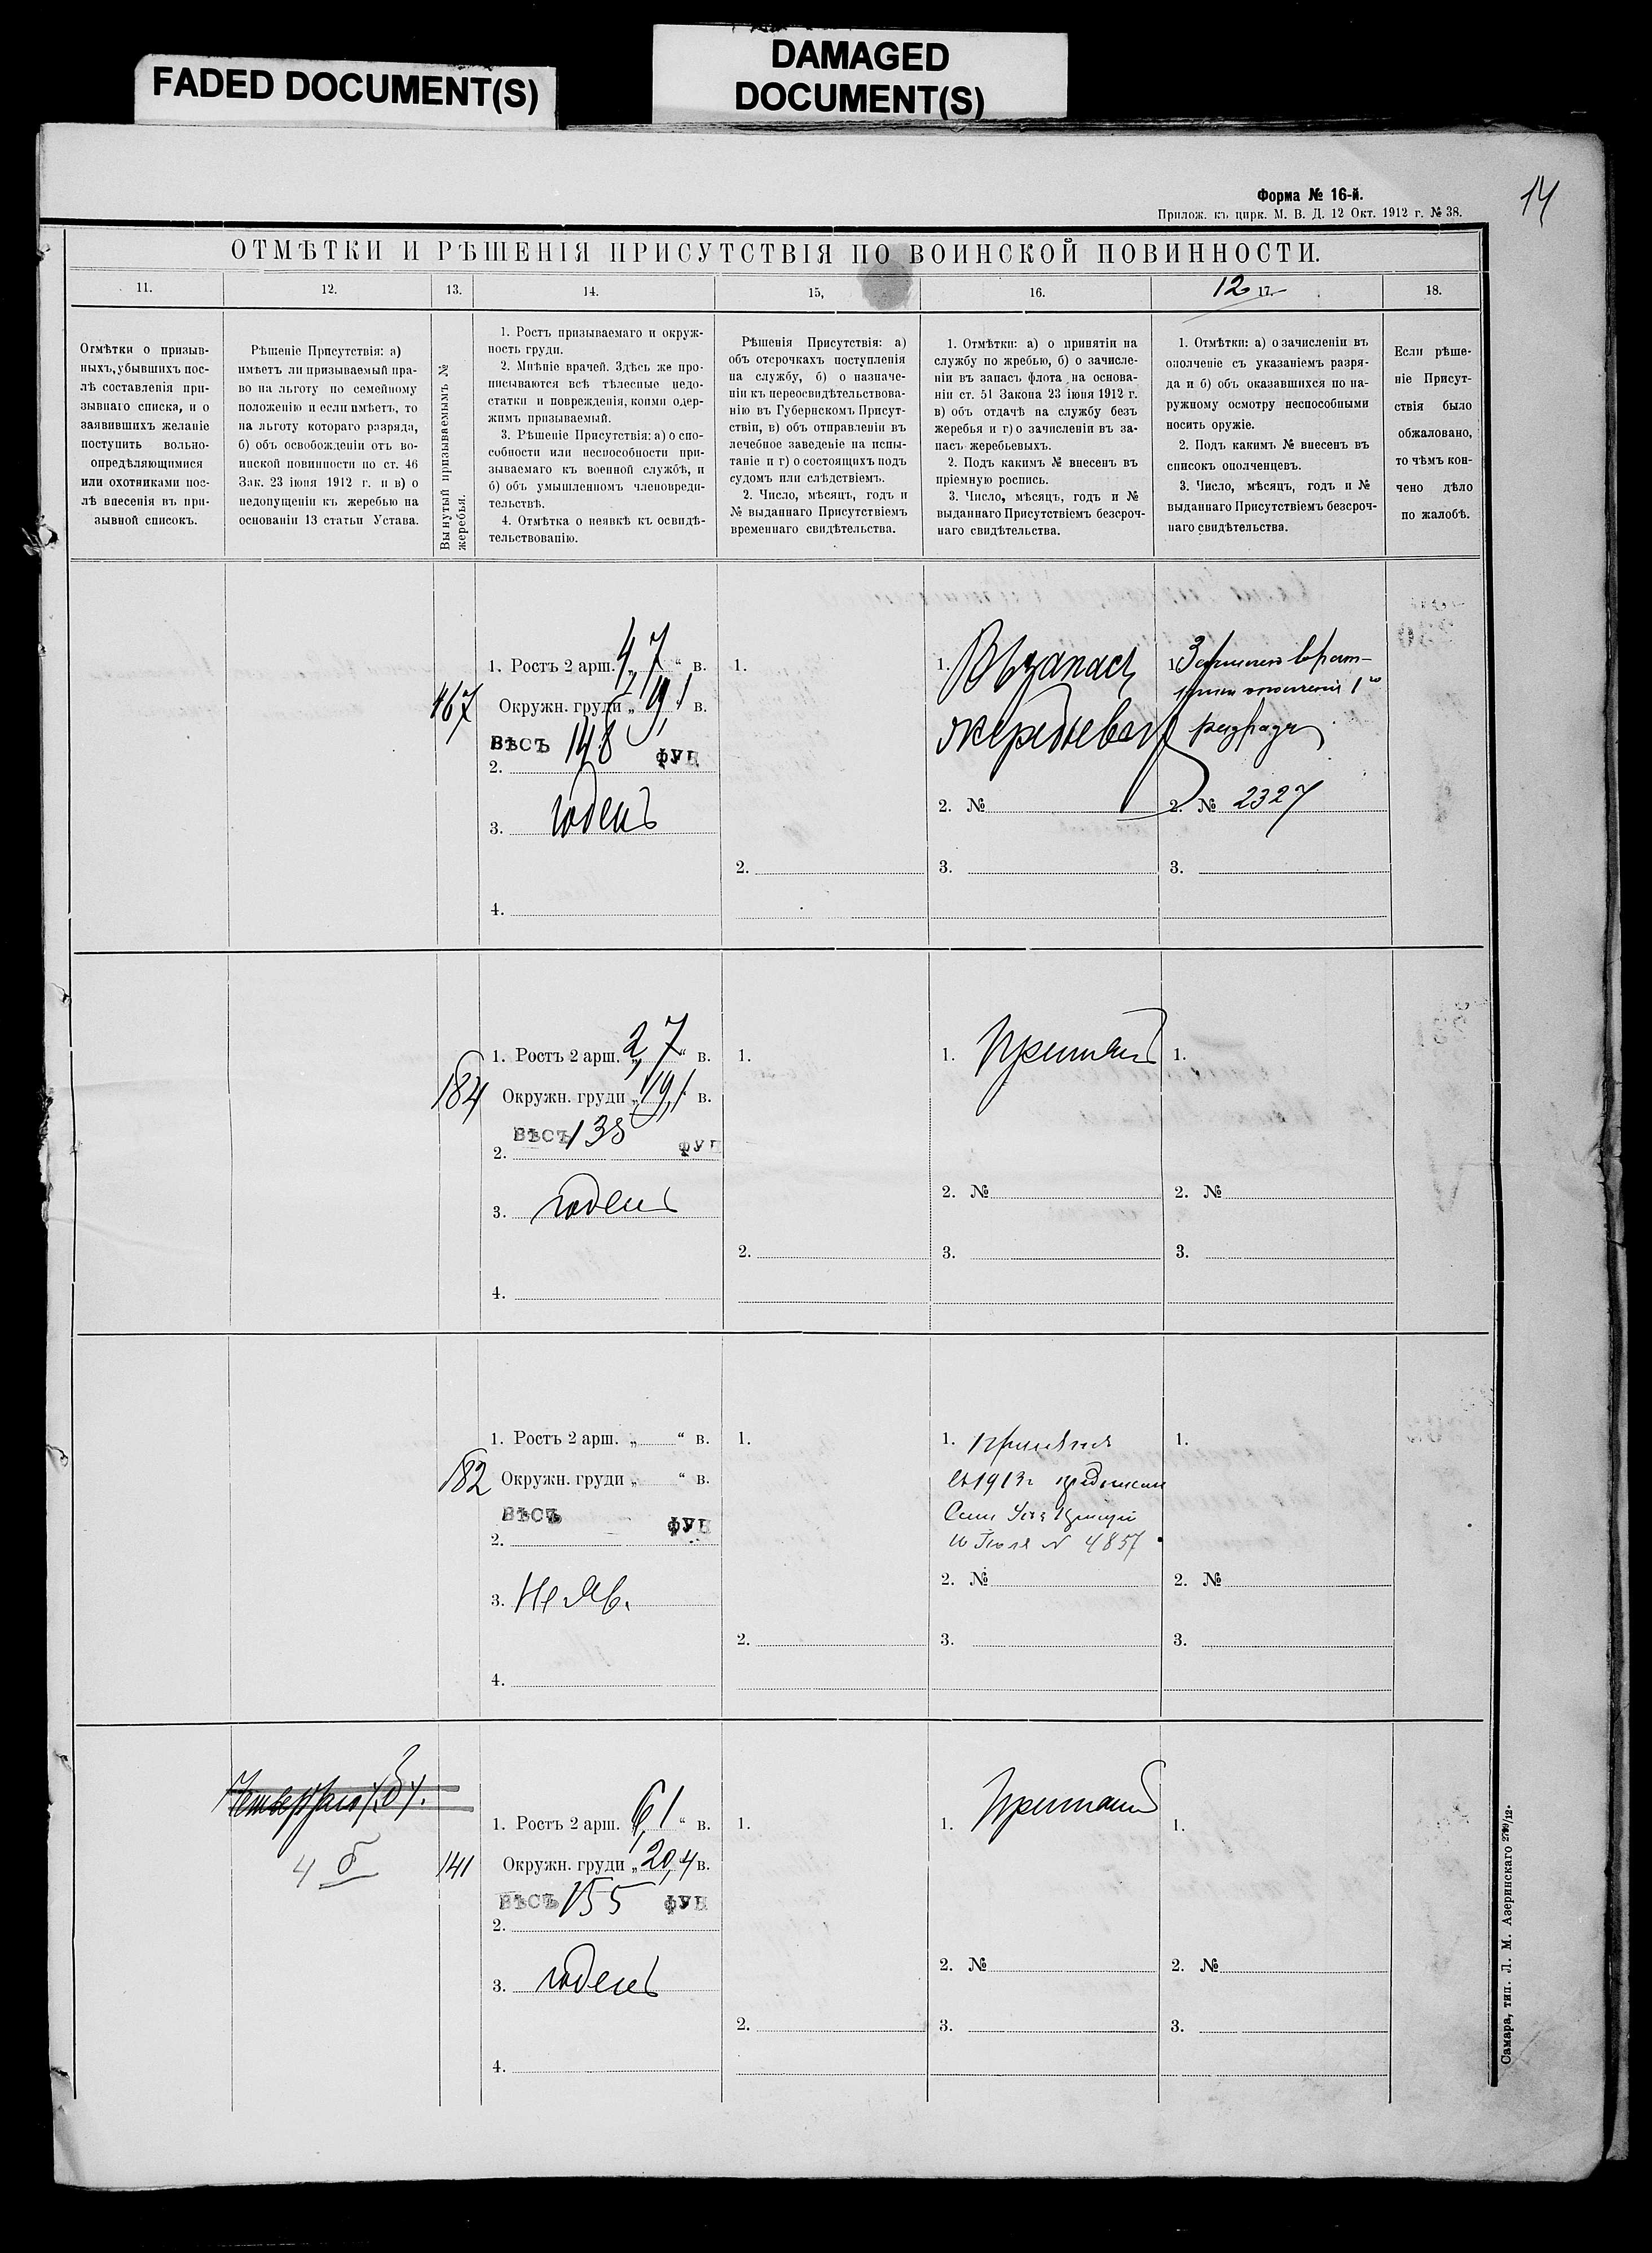 FADED DOCUMENT(S)
DAMAGED
DOCUMENT(S)
Форма № 16-й.
Прилож. къ цирк. М. В. Д. 12 Окт. 1912 г. № 38.
14
ОТМѢТКИ И РѢШЕНІЯ ПРИСУТСТВІЯ ПО ВОИНСКОЙ ПОВИННОСТИ.
11.
12.
13.
14.
15,
16.
12 17.
18.
Отмѣтки о призыв-
ныхъ, убывшихъ пос-
лѣ составленія при-
зывнаго списка, и о
заявившихъ желаніе
поступить вольно-
опредѣляющимися
или охотниками пос-
лѣ внесенія въ при-
зывной списокъ.
Рѣшеніе Присутствія: а)
имѣетъ ли призываемый пра-
во на льготу по семейному
положенію и если имѣетъ, то
на льготу котораго разряда,
б) объ освобожденіи отъ во-
инской повинности по ст. 46
Зак. 23 іюня 1912 г. и в) о
недопущеніи къ жеребью на
основаніи 13 статьи Устава.
Вынутый призываемымъ №
жеребья.
1. Ростъ призываемаго и окруж-
ность груди.
2. Мнѣніе врачей. Здѣсь же про-
писываются всѣ тѣлесные недо-
статки и поврежденія, коими одер-
жимъ призываемый.
3. Рѣшеніе Присутствія: а) о спо-
собности или неспособности при-
зываемаго къ военной службѣ, и
б) объ умышленномъ членовреди-
тельствѣ.
4. Отмѣтка о неявкѣ къ освидѣ-
тельствованію.
Рѣшенія Присутствія: а)
объ отсрочкахъ поступленія
на службу, б) о назначе-
ніи къ переосвидѣтельствова-
нію въ Губернскомъ Присут-
ствіи, в) объ отправленіи въ
лечебное заведеніе на испы-
таніе и г) о состоящихъ подъ
судомъ или слѣдствіемъ.
2. Число, мѣсяцъ, годъ и
№ выданнаго Присутствіемъ
временнаго свидѣтельства.
1. Отмѣтки: а) о принятіи на
службу по жребью, б) о зачисле-
ніи въ запасъ флота на основа-
ніи ст. 51 Закона 23 іюня 1912 г.
в) объ отдачѣ на службу безъ
жеребья и г) о зачисленіи въ за-
пасъ жеребьевыхъ.
2. Подъ какимъ № внесенъ въ
пріемную роспись.
3. Число, мѣсяцъ, годъ и №
выданнаго Присутствіемъ безсроч-
наго свидѣтельства.
1. Отмѣтки: а) о зачисленіи въ
ополченіе съ указаніемъ разря-
да и б) объ оказавшихся по на-
ружному осмотру неспособными
носить оружіе.
2. Подъ какимъ № внесенъ въ
списокъ ополченцевъ.
3. Число, мѣсяцъ, годъ и №
выданнаго Присутствіемъ безсроч-
наго свидѣтельства.
Если рѣше-
ніе Присут-
ствія было
обжаловано,
то чѣмъ кон-
чено дѣло
по жалобѣ.
467
1. Ростъ 2 арш. „ 4,7 “ в.
Окружн. груди „ 19,1 “ в.
ВѢСЪ 148 ФУН
2.
3. годенъ
4.
1.
2.
1. Въ запасъ
жеребьевых
2. №
3.
1.
ополченія 1го
разряда
2. № 2327
3.
184
1. Ростъ 2 арш. „ 2,7 “ в.
Окружн. груди „ 19,1 “ в.
ВѢСЪ 138 ФУН
2.
3. годенъ
4.
1.
2.
1. Принятъ
2. №
3.
1.
2. №
3.
182
1. Ростъ 2 арш. „ “ в.
Окружн. груди „ “ в.
ВѢСЪ ФУН
2.
3. Не Яв.
4.
1.
2.
1.
въ 1913 г
№ 4857
2. №
3.
1.
2. №
3.
4 б
141
1. Ростъ 2 арш. 6,1 “ в.
Окружн. груди „ 20,4 в.
ВѢСЪ 155 ФУН
2.
3. годенъ
4.
1.
2.
1. Принятъ
2. №
3.
1.
2. №
3.
Самара, тип. Л. М. Азеринскаго